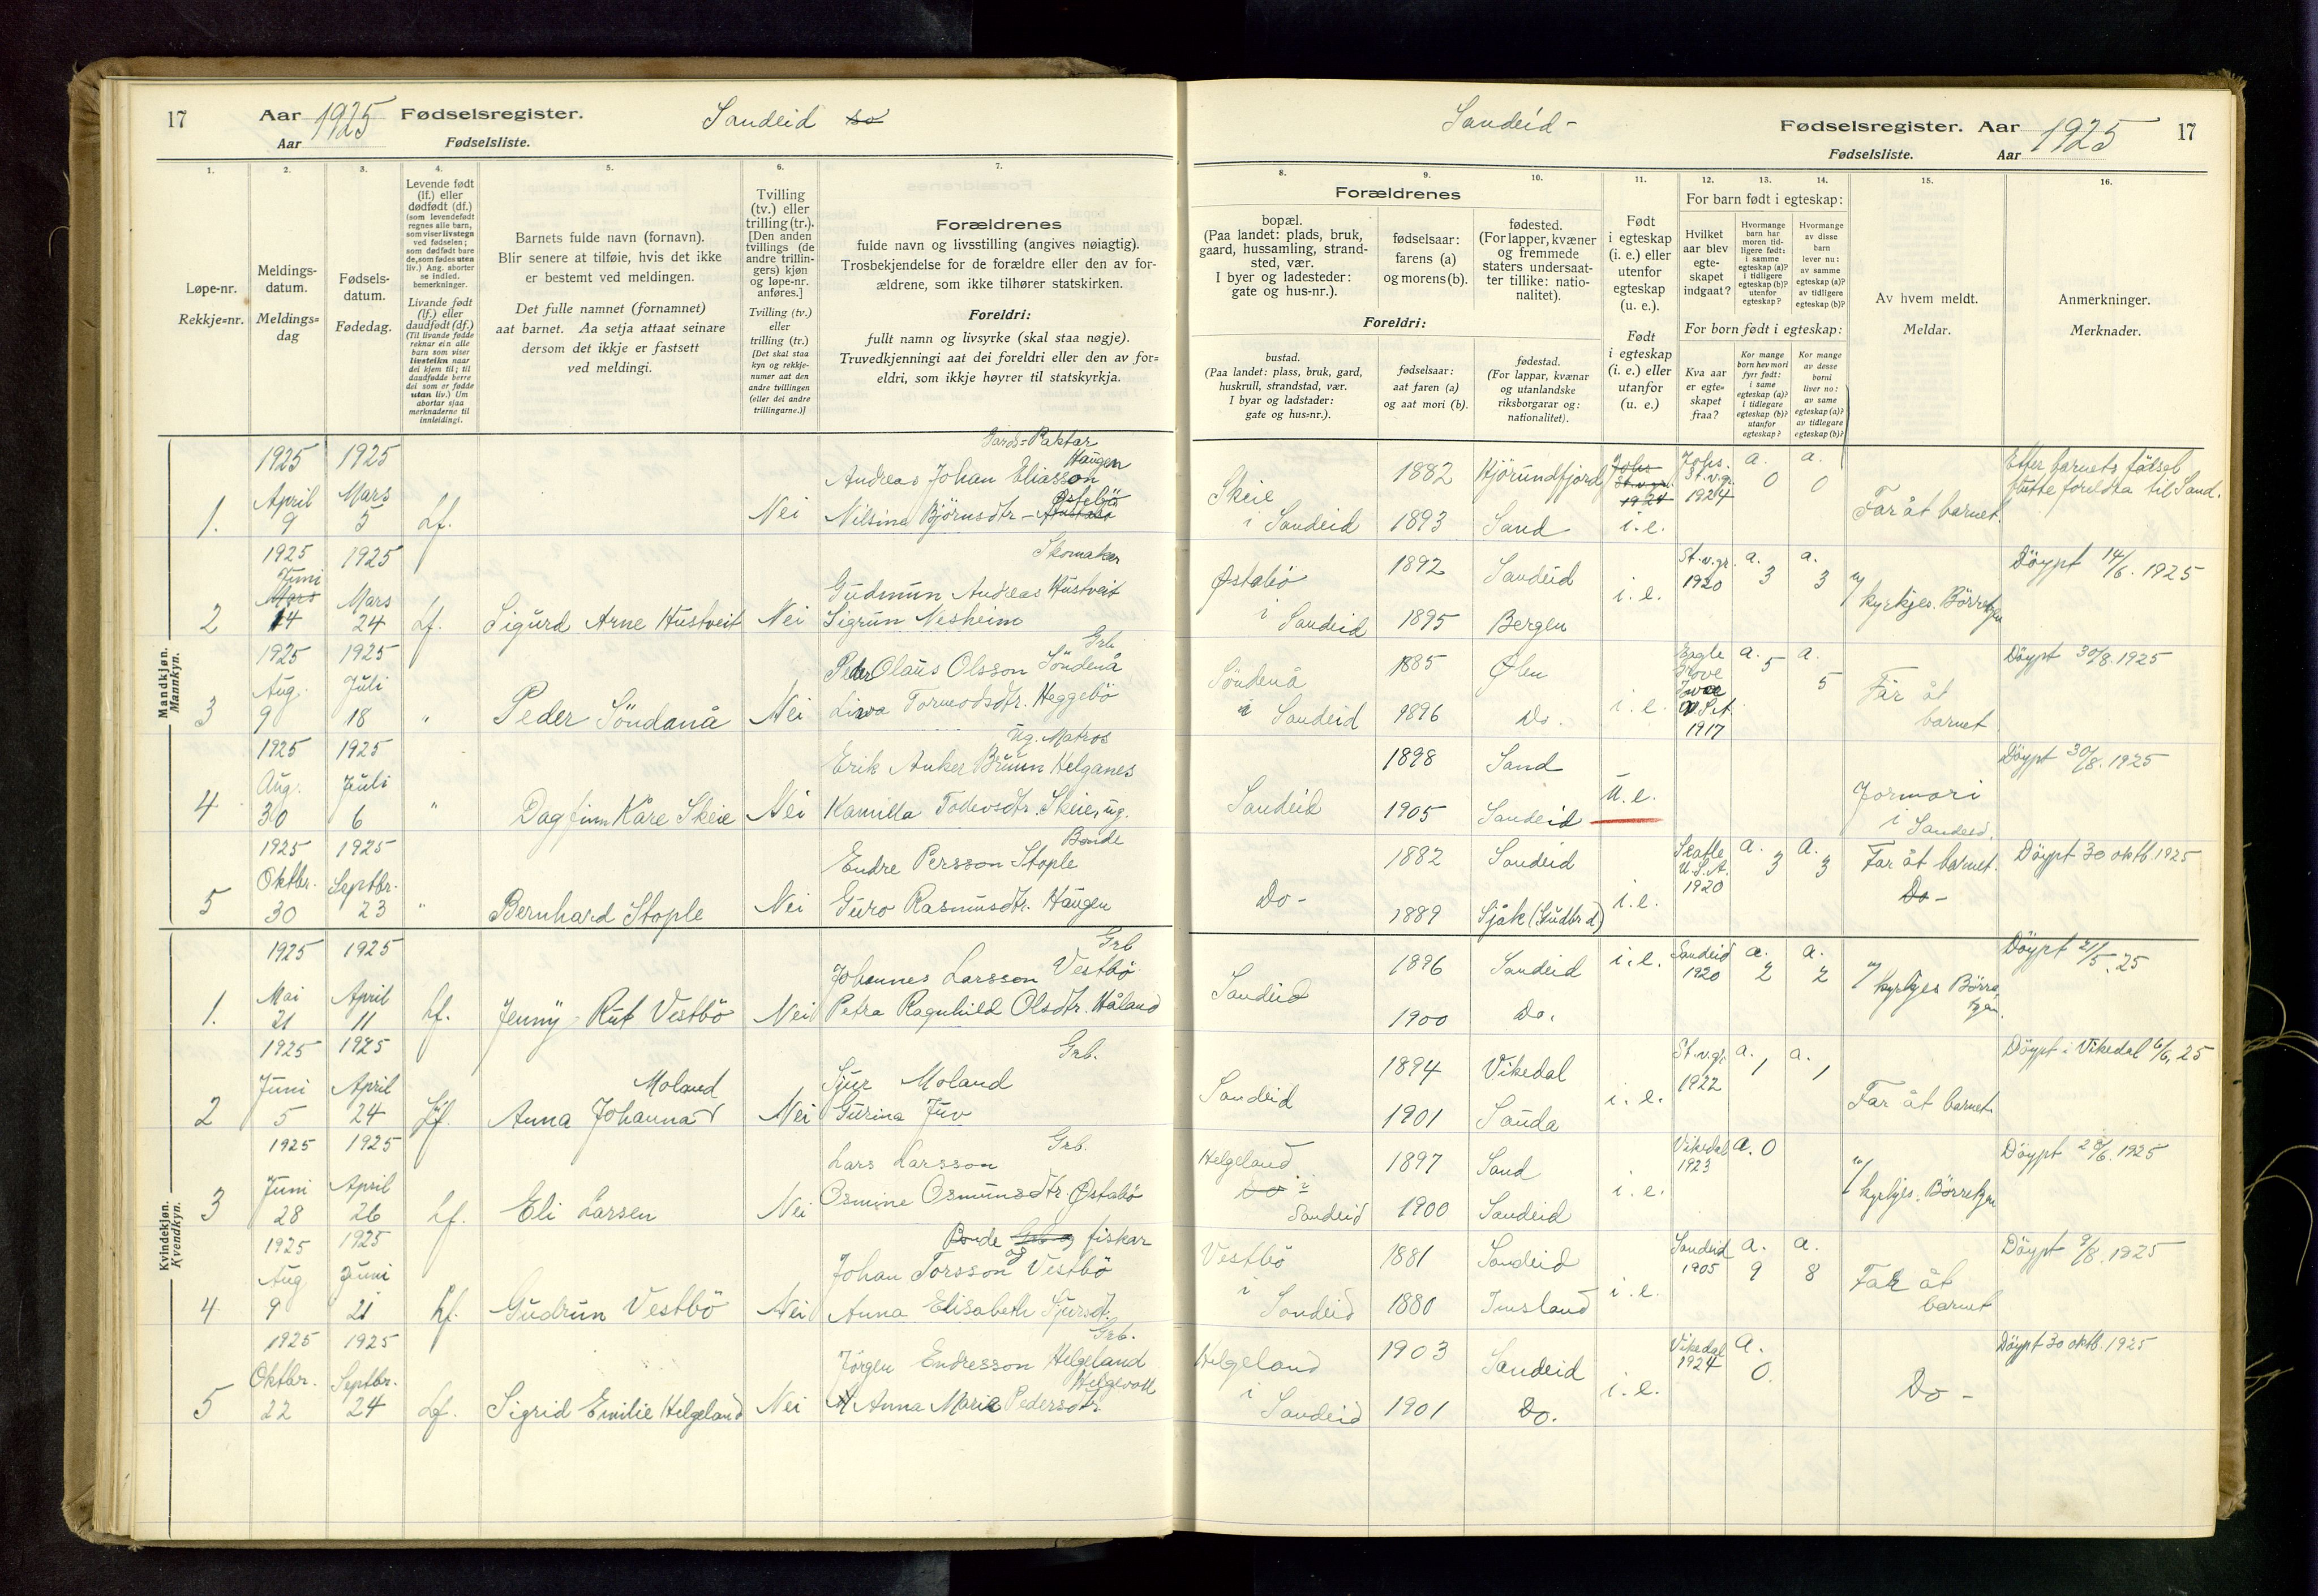 17
Aar 1925 Fødselsregister. Sandeid
Aar Fødselsliste.
1.
2.
3.
4.
5.
6.
7.
Løpe-nr.
Rekkje=nr.
Meldings-
datum.
Meldings=
dag
Fødsels-
datum.
Fødedag.
Levende født
(lf.) eller
dødfødt (df.)
(som levendefødt
regnes alle barn,
som viser livstegn
ved fødselen;
som dødfødt bare
de, som fødes uten
liv.) Ang. aborter
se indled.
bemerkninger.
Livande født
(lf.) eller
daudfødt (df.)
(Til livande fødde
reknar ein alle
barn som viser
livsteikn naar
dei kjem til; til
daudfødde berre
dei som er fødde
utan liv.) Um
abortar sjaa
merknaderne til
innleidingi.
Barnets fulde navn (fornavn).
Blir senere at tilføie, hvis det ikke
er bestemt ved meldingen.
Det fulle namnet (fornamnet)
aat barnet. Aa setja attaat seinare
dersom det ikkje er fastsett
ved meldingi.
Tvilling
(tv.) eller
trilling (tr.).
[Den anden
tvillings (de
andre trillin-
gers) kjøn
og løpe-nr.
anføres.]
Tvilling (tv.)
eller
trilling (tr.)
[Det skal staa
kyn og rekkje-
numer aat den
andre tvillingen
(eller dei andre
trillingarne.)]
Forældrenes
fulde navn og livsstilling (angives nøiagtig).
Trosbekjendelse for de forældre eller den av for-
ældrene, som ikke tilhører statskirken.
Foreldri:
fullt namn og livsyrke (skal staa nøgje).
Truvedkjenningi aat dei foreldri eller den av for=
eldri, som ikkje høyrer til statskyrkja.
Mandkjøn.
Mannkyn.
1925 1925 Haugen
Andreas Johan Eliasson
1. April 9 Mars 5 Lf. Nei Nilsine Björnsdtr -
1925 1925 Skomaker
Juni Mars Gudmun Andreas Hustveit
2 14 24 Lf. Sigurd Arne Hustveit Nei Sigrun Nesheim
1925 1925 Grb
Aug. Juli Peder Olaus Olsson Söndenå
3 9 18 " Peder Söndanå Nei Tormodsdtr. Heggebö
1925 1925 Ug. Matros
Aug. Juli Erik Anker Bruun Helganes
4 30 6 " Dagfinn Kåre Skeie Nei Kamilla Todevsdtr. Skeie, ug.
1925 1925 Bonde
Oktbr. Septbr. Endre Persson Stople
5 30 23 " Bernhard Stople Nei Guro Rasmusdtr. Haugen
Kvindekjøn.
Kvendkyn.
1925 1925 Grb
Mai April Johannes Larsson Vestbö
1. 21 11 Lf. Jenny Rut Vestbö Nei Petra Ragnhild Olsdtr. Håland
1925 1925 Grb.
Juni April Moland Sjur Moland
2 5 24 Lf. Anna Johanna Nei Gurina Juv
1925 1925 Grb.
Juni April Lars Larsson
3 28 26 Lf. Eli Larsen Nei Osmine Osmunsdtr. Østabö
1925 1925 Bonde og fiskar
Aug Juni Johan Torsson Vestbö
4 9 21 Lf. Gudrun Vestbö Nei Anna Elisabeth Sjursdt.
1925 1925 Grb.
Oktbr. Septbr. Jörgen Endresson Helgeland
5 22 24 Lf. Sigrid Emilie Helgeland Nei Anna Marie Pedersdtr. Helgevoll
Sandeid - Fødselsregister. Aar 1925 17
Fødselsliste. Aar
8.
9.
10.
11.
12.
13.
14.
15.
16.
Forældrenes
bopæl.
(Paa landet: plads, bruk,
gaard, hussamling, strand-
sted, vær.
I byer og ladesteder:
gate og hus-nr.).
fødselsaar:
farens (a)
og morens (b).
fødested.
(For lapper, kvæner
og fremmede
staters undersaat-
ter tillike: natio-
nalitet).
Foreldri:
bustad.
(Paa landet: plass, bruk, gard,
huskrull, strandstad, vær.
I byar og ladstader:
gate og hus=nr.).
fødselsaar:
aat faren (a)
og aat mori (b).
fødestad.
(For lappar, kvænar
og utanlandske
riksborgarar og:
nationalitet).
Født
i egteskap
(i. e.) eller
utenfor
egteskap
(u. e.).
Født
i egteskap
(i. e.) eller
utanfor
(u. e.)
For barn født i egteskap:
Hvilket
aar blev
egte-
skapet
indgaat?
Hvormange
barn har
moren tid-
ligere født:
i samme
egteskap (a)?
i tidligere
egteskap (b)?
utenfor
egteskap?
Hvormange
av disse
barn
lever nu:
av samme
egteskap (a)?
av tidligere
egteskap (b)?
For born født i egteskap:
Kva aar
er egte=
skapet
fraa?
Kor mange
born hev mori
fyrr født:
i same
egteskap (a)?
i tidlegare
egteskap (b)?
utanfor
egteskap?
Kor mange
av desse
borni
liver no:
av same
egteskap (a)?
av tidlegare
egteskap (b)?
Av hvem meldt.
Meldar.
Anmerkninger.
Merknader.
Skeie 1882 Hjörundfjord St.v.gr. a. 0 a. 0 Etter barnets födsel
i Sandeid 1893 Sand i.e. 1924 Far åt barnet. flutte foreldra til Sand.
Østabö 1892 Sandeid St.v.gr. a. 3 a. 3 Döypt 14/6. 1925
i Sandeid 1895 Bergen i.e. 1920 kyrkjes. Börretzen
Söndenå 1885 Ølen Eagle Grove a. 5 a. 5 Far åt Döypt 30/8. 1925
i Sandeid 1896 Do. i.e. 1917 barnet
Sandeid 1898 Sand U.e. Jormori Döypt 30/8. 1925
1905 Sandeid i Sandeid.
Do - 1882 Sandeid Seatle U.S.A. a. 3 a. 3 Far åt barnet. Döypt 30 oktb. 1925
1889 Sjåk (Gudbr d) i.e. 1920 Do -
Sandeid 1896 Sandeid i.e. Sandeid 1920 a. 2 a. 2 kyrkjes Börretzen. Döypt 21/5. 25
1900 Do.
Sandeid 1894 Vikedal St.v.gr. a. 1 a. 1 Döypt i Vikedal 6/6, 25
1901 Sauda i.e. 1922 Far åt barnet.
Helgeland 1897 Sand Vikedal 1923 a. 0 Döypt 28/6. 1925
i Sandeid 1900 Sandeid i.e. kyrkjes. Börretzen
Vestbö 1881 Sandeid Sandeid 1905 a. 9 a. 8 Far åt Döypt 9/8. 1925
i Sandeid 1880 Imsland i.e. barnet
Helgeland 1903 Sandeid Vikedal 1924 a. 0. Döypt 30 oktb. 1925
i Sandeid 1901 Do. i.e. Do -